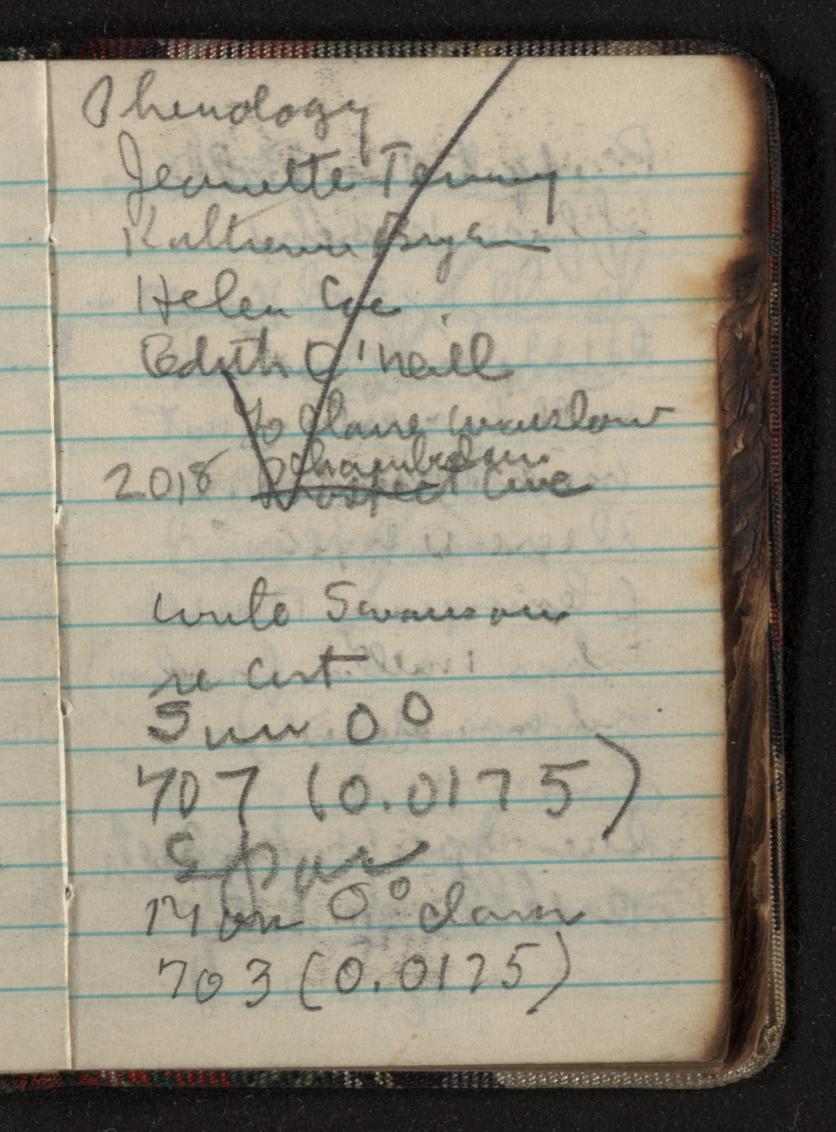 Phenology
Jeanette Tenney
Katherine Bryan
Helen Coe
Edith O'Neill
% Elaine Winslow
Chamberlain
2018 Prospect Ave
write Swanson
re Cest
Sun 0°
707 (0.0175)
5 pm
Mon 0° dawn
703 (0.0175)